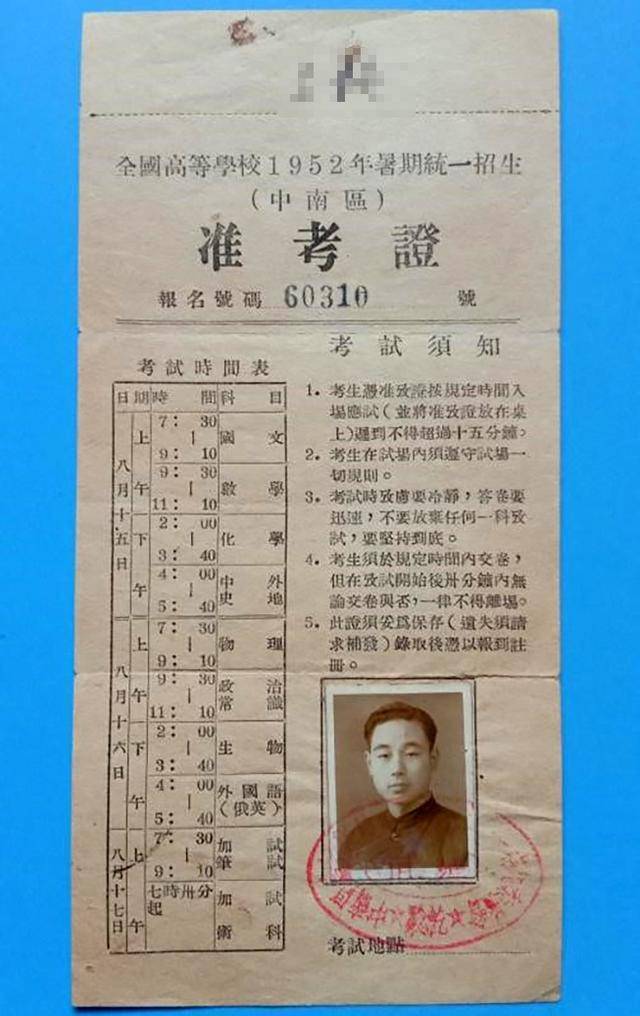 全國高等學校1952年暑期統一招生
(中南區)
准考證
報名號碼 60310 號
考試時間表
日期 時間 科目
八月十五日
上午
7：30—9：10 國文
9：30—11：10 數學
下午
2：00—3：40 化學
4：00—5：40 中外史地
八月十六日
上午
7：30—9：10 物理
9：30—11：10 政治常識
下午
2：00—3：40 生物
4：00—5：40 外國語(俄英)
八月十七日
上午
7：30—9：10 加試筆試
七時卅分起 加試術科
考試須知
1. 考生憑准攷證按規定時間入
場應試(並將准攷證放在桌
上)遲到不得超過十五分鐘。
2. 考生在試場內須遵守試場一
切規則。
3. 考試時攷慮要冷靜，答卷要
迅速，不要放棄任何一科攷
試，要堅持到底。
4. 考生須於規定時間內交卷，
但在攷試開始後卅分鐘內無
論交卷與否，一律不得離場。
5. 此證須妥爲保存(遺失須請
求補發)錄取後憑以報到註
冊。
考試地點